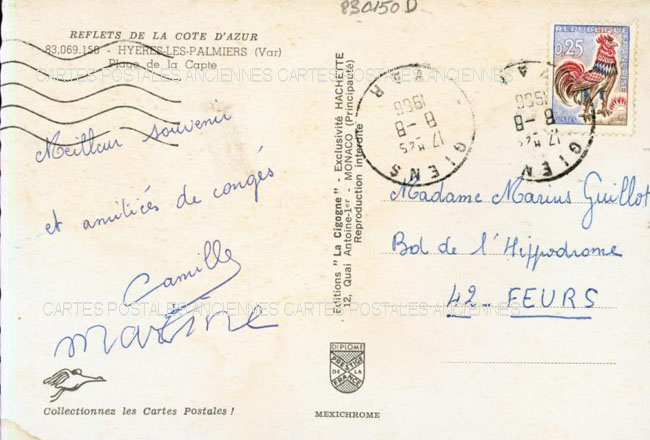 830150 D
REFLETS DE LA COTE D'AZUR
83.069.150 - HYERES-LES-PALMIERS (Var)
Plage de la Capte
CARTES POSTALES ANCIENNES CARTES POSTALES ANCIENNES CARTES POSTALES ANCIENNES
Meilleur souvenir
et amitiés de congés
Camille
Martine
CARTES POSTALES ANCIENNES CARTES POSTALES ANCIENNES
Collectionnez les Cartes Postales !
Editions "La Cigogne" - Exclusivité HACHETTE
12, Quai Antoine-1er - MONACO (Principauté)
Reproduction interdite
DIPLÔME
PRESTIGE
DE LA
FRANCE
MEXICHROME
0,25
17 H45
8-8
1966
GIENS
VAR
17 H45
8-8
1966
GIENS
VAR
Madame Marius Guillot
Bd de l'Hippodrome
42 - FEURS